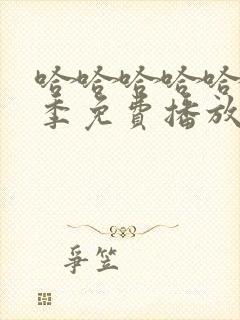 哈哈哈哈哈
季免費播放
爭笠